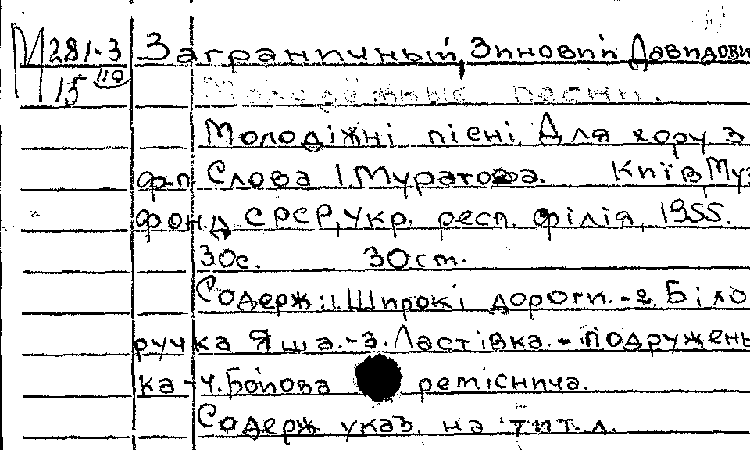 М 281-3 Заграничный, Зиновий Давидови
15 110
Молодёжные песни.
Молодіжні пісні. Для хору з
ф-п. Слова І. Муратова. Київ, Муз
фонд СРСР, Укр. респ. філія, 1955.
30с. 30см.
Содерж: 1. Широкі дороги. - 2. Біло
ручка Яша. - 3. Ластівка. - подружень
ка - 4. Бойова ремiснича.
Содерж указ. на тит. л.